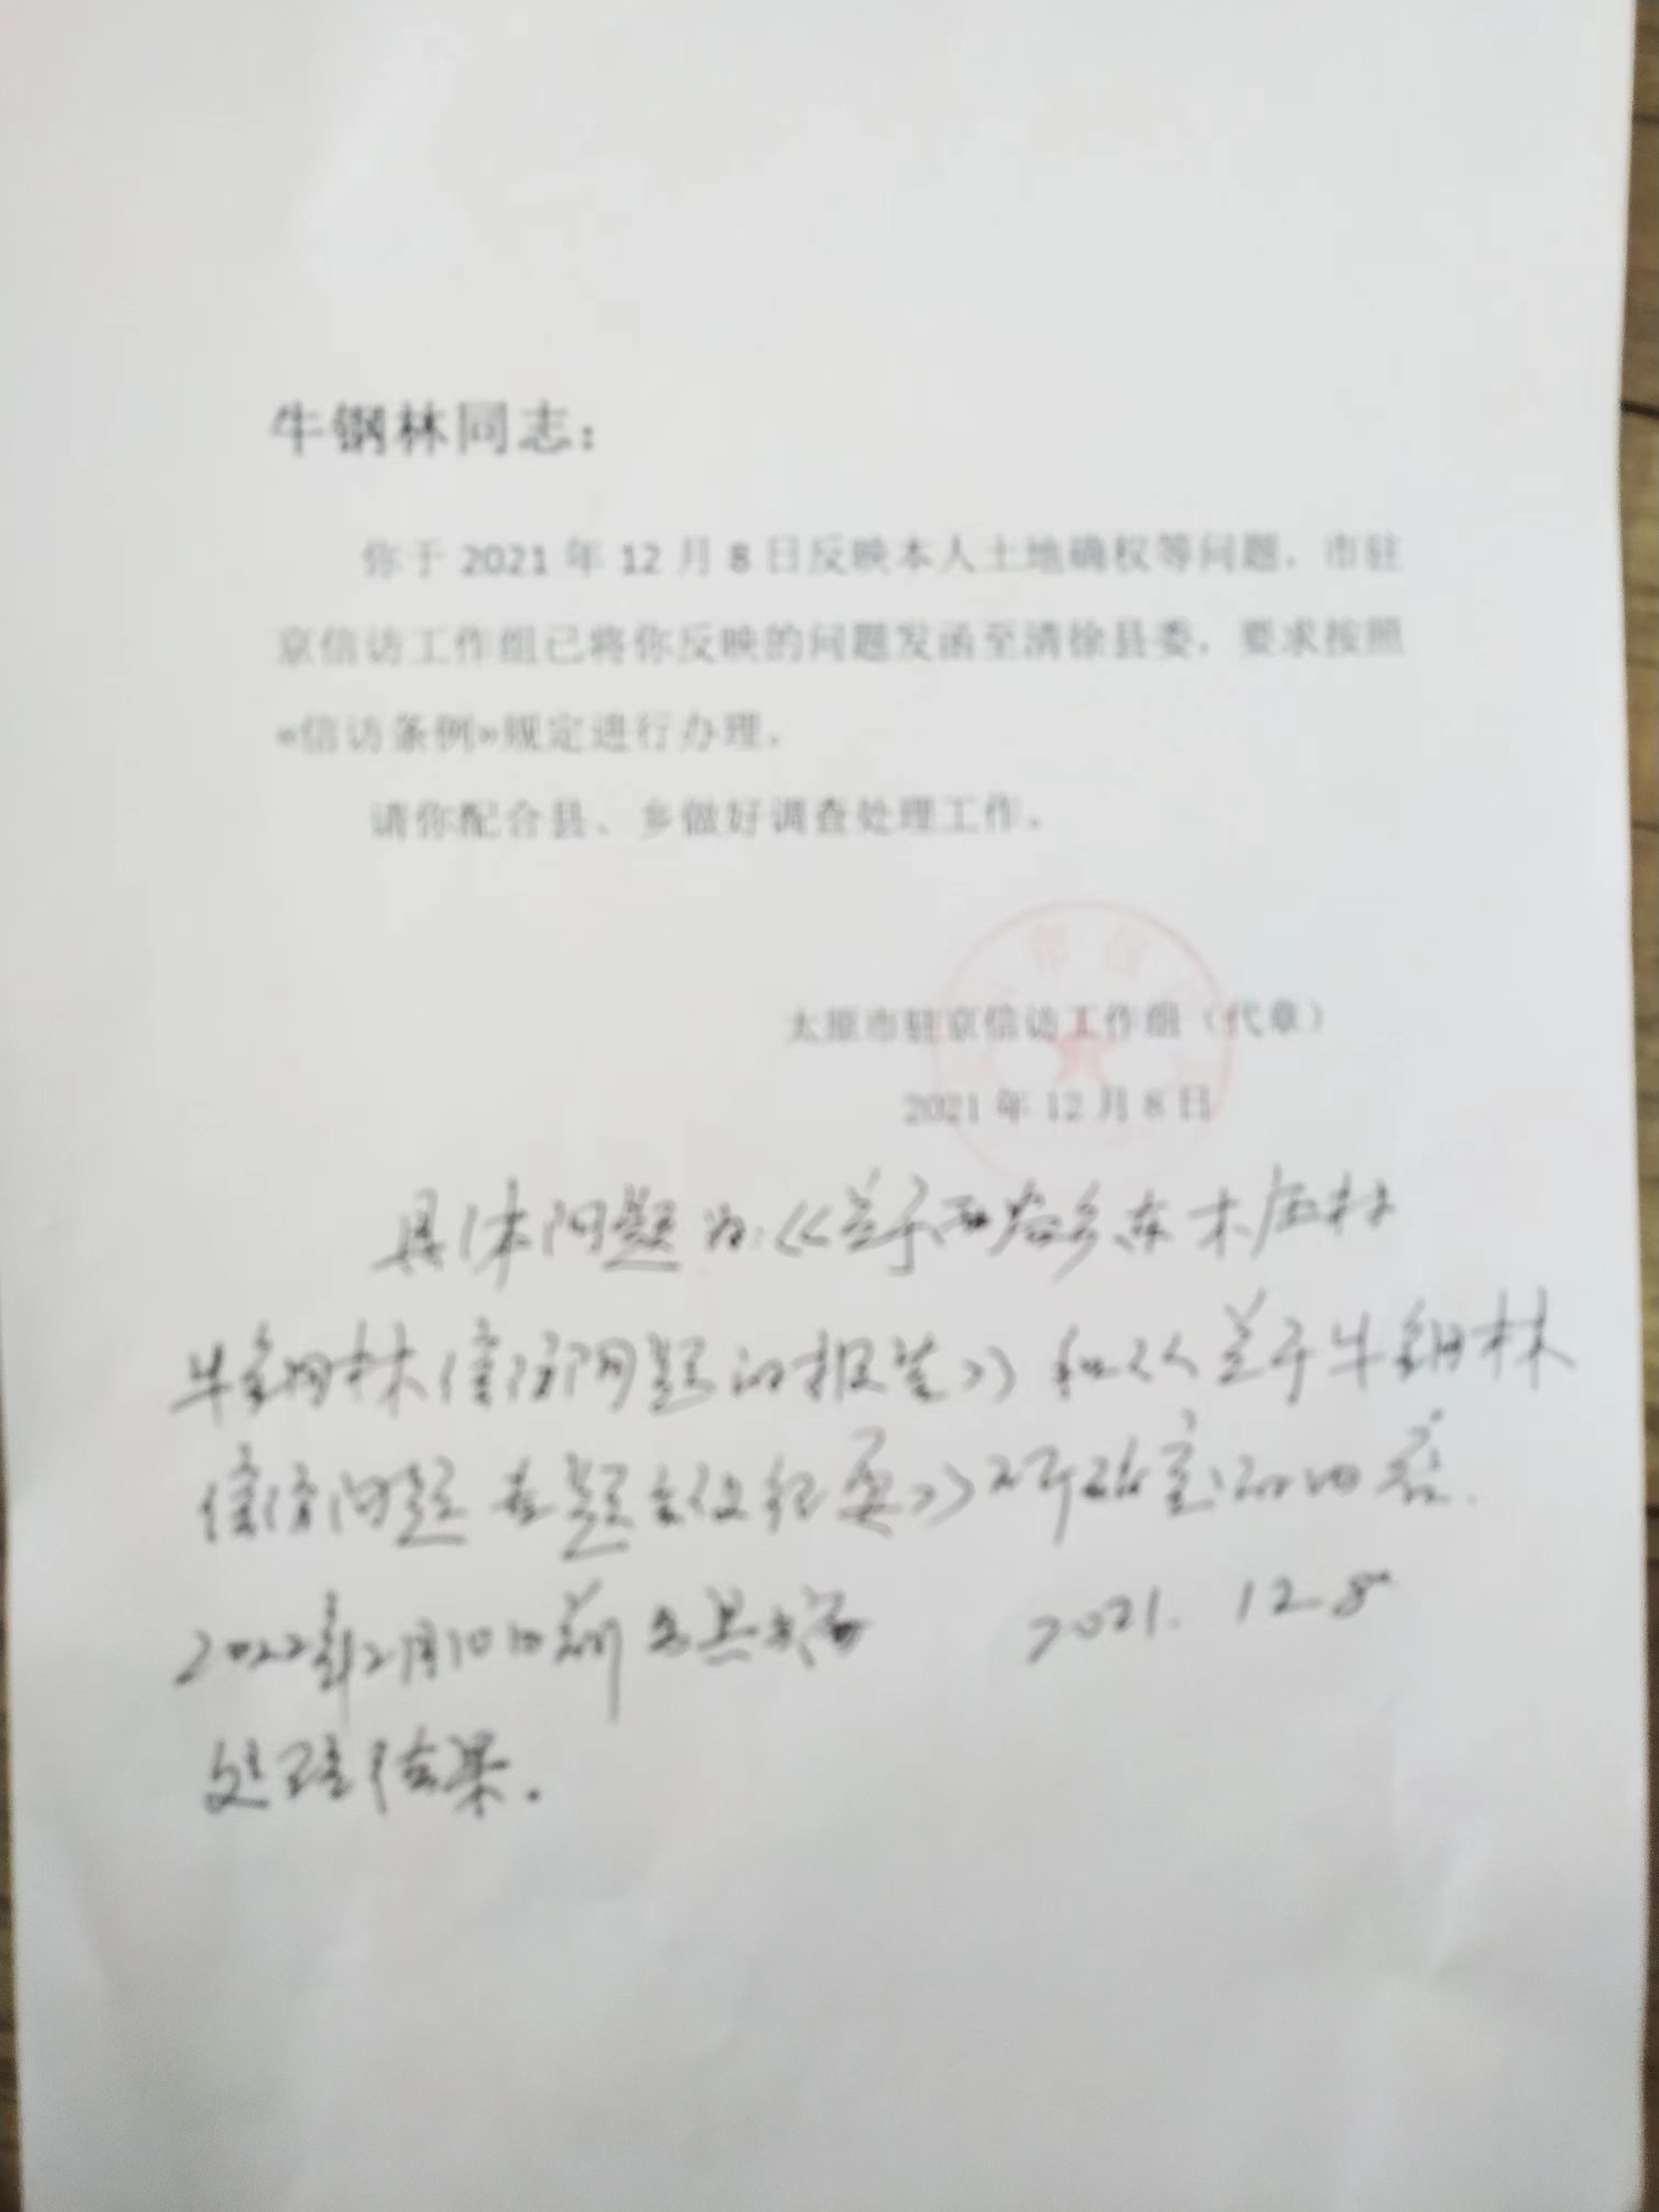 牛钢林同志：
你于 2021 年 12 月 8 日反映本人土地确权等问题，市驻
京信访工作组已将你反映的问题发函至清徐县委，要求按照
«信访条例»规定进行办理。
请你配合县、乡做好调查处理工作。
太原市驻京信访工作组（代章）
2021 年 12 月 8 日
具体问题为:《关于西谷乡东木庄村
牛钢林信访问题的报告》和《关于牛钢林
信访问题专题会议纪要》不落实的内容.
2022年2月10日前
2021. 12.8
处理结果.